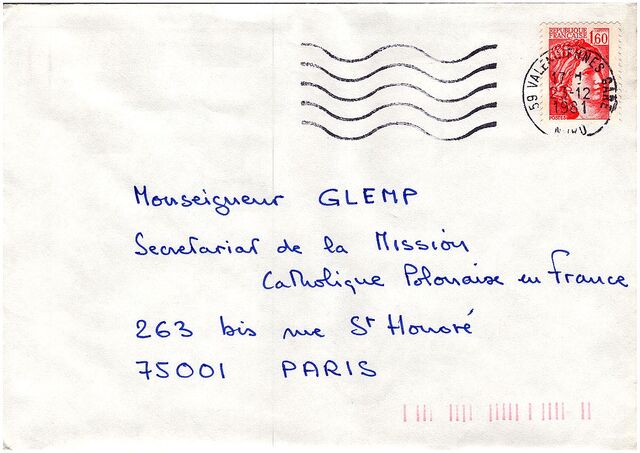 REPUBLIQUE
FRANCAISE
1,60
POSTES
59 VALENCIENNES GARE
17 H
23-12
1981
NORD
Monseigneur GLEMP
Secretariat de la Mission
Catholique Polonaise en France
263 bis rue St Honoré
75001 PARIS